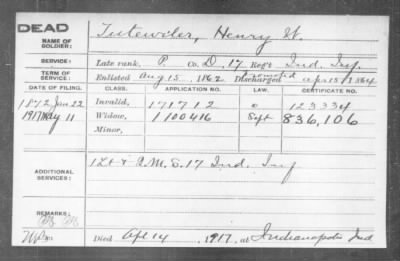 DEAD
NAME OF SOLDIER: Tutewiler, Henry W.
SERVICE: Late rank, P. Co. D, 17 Reg't Ind. Inf.
TERM OF SERVICE: Enlisted Aug 15, 1862 Discharged promoted Apr 15, 1864
DATE OF FILING. CLASS. APPLICATION NO. LAW. CERTIFICATE NO.
1872 Jan 22 Invalid, 171712 123334
1917 May 11 Widow, 1100416 Sept 836,106
Minor,
ADDITIONAL SERVICES: 1 Lt & R.M.S. 17 Ind. Inf
REMARKS:
Died Apl 14, 1917, at Indianapolis Ind